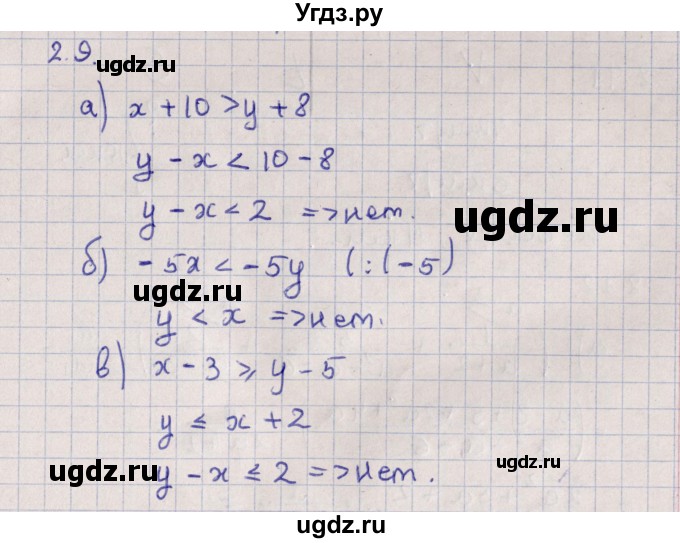 Угдз.ру
2.9.
ugdz.ru
а) x + 10 > y + 8
y - x < 10 - 8
y - x < 2 => нет.
ugdz.ru
б) - 5x < - 5y (:(-5)
ugdz.ru
y < x => нет.
в) x - 3 ⩾ y - 5
y ≤ x + 2
ugdz.ru
y - x ≤ 2 => нет.
ugdz.ru
ugdz.ru